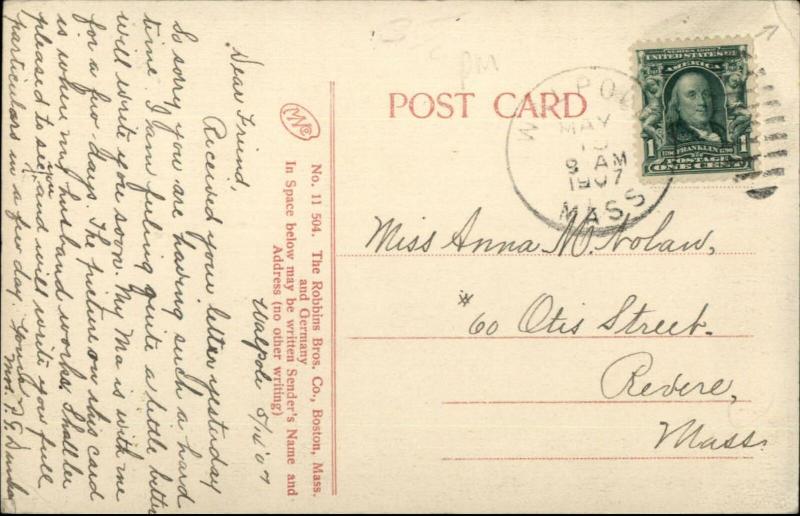 Dear Friend,
Received your letter yesterday
So sorry you are having such a hard
time. I am feeling quite a little better
will write you soon. My Ma is with me
for a few days. The picture on this card
is where my husband works. Shall be
pleased to see you and will write you full
particulars in a few day. Yours
Mrs.
Walpole 5/
MVC
No. 11 504. The Robbins Bros. Co., Boston, Mass.
and Germany
In Space below may be written Sender's Name and
Address (no other writing)
PM
POST CARD
WALPOLE
MAY
8 AM
1907
MASS
SERIES 1902
UNITED STATES OF
AMERICA
1 1
1706 FRANKLIN 1790
POSTAGE
ONE CENT
Miss Anna M. Nolan,
# 60 Otis Street.
Revere,
Mass.